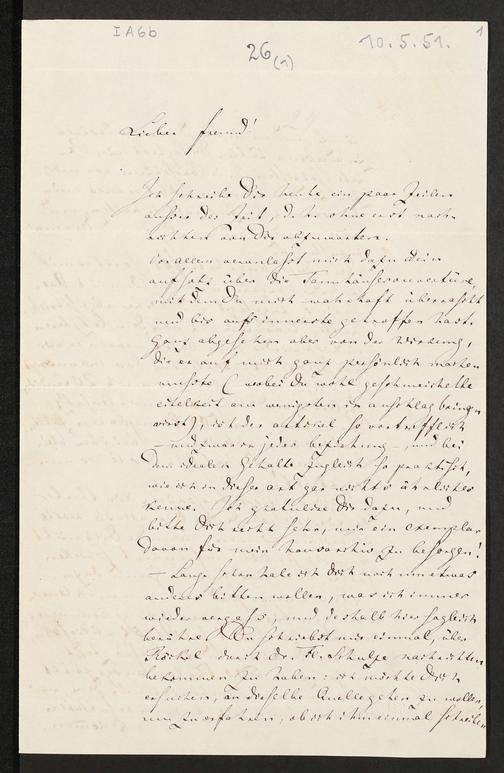 IA6b
26 (1)
10.5.51.
1
Lieber Freund!
Ich schreibe Dir heute ein paar Zeilen
außer der Zeit, d.h. ohne erst nach-
richten von Dir abzuwarten.
Vor allem veranlaßt mich dazu Dein
aufsatz über die Tannhäuserouvertüre,
mit dem Du mich wahrhaft überrascht
und bis aufs innerste getroffen hast.
Ganz abgesehen aber von der Wirkung,
die er auf mich ganz persönlich machen
mußte (wobei Du wohl geschmeichelte
eitelkeit am wenigsten in anschlag bringen
wirst), ist der artikel so vortrefflich
– und zwar in jeder beziehung –, und bei
dem idealen Gehalte zugleich so praktisch,
wie ich in dieser art gar nichts ähnliches
kenne. Ich gratulire Dir dazu, und
bitte Dich recht sehr, mir ein exemplar
davon für mein hausarchiv zu besorgen!
– Lange schon habe ich Dich noch um etwas
anderes bitten wollen, was ich immer
wieder vergaß, und deshalb hier sogleich
berühre. Du schriebst mir einmal, über
Röckel durch Dr. Fl. Schulze nachrichten
bekommen zu haben: ich möchte Dich
ersuchen, an dieselbe Quelle gehen zu wollen,
um zu erfahren, ob ich ihm einmal schreiben